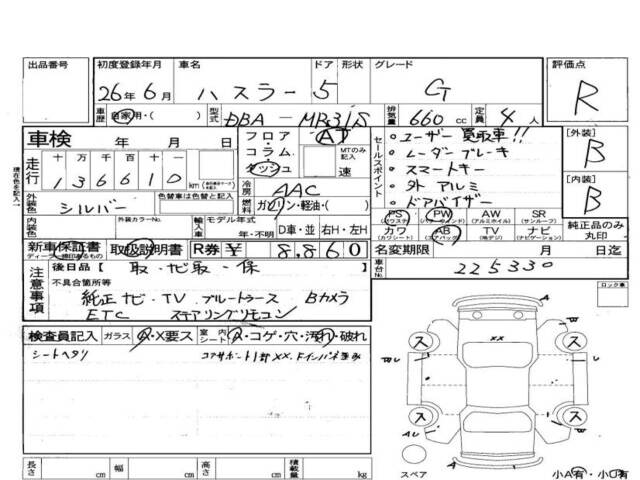 出品番号 初度登録年月 車名 ドア 形状 グレード 評価点
26年6月 ハスラー 5 G R
車歴 自家用・( ) 型式 DBA-MR31S 排気量 660 cc 定員 4 人
車検 年 月 日 フロア AT
コラム MTのみ記入
ダッシュ 速
セールスポイント
ユーザー買取車!!
レーダーブレーキ
スマートキー
外アルミ
ドアバイザー
[外装] B
[内装] B
走行 十 万 千 百 十 一
136610 km
現在色を記入→
外装色 シルバー 色替車は色替と記入
冷房 AAC
燃料 ガソリン・軽油・( )
内装色 外装カラーNo. 輸入車 モデル年式 年・不明 D車・並 右H・左H
PS (パワステ) PW (パワーウインド) AW (アルミホイル) SR (サンルーフ)
カワ (カワシート) AB (エアバッグ) TV (地デジ) ナビ (ナビゲーション)
純正品のみ丸印
新車保証書 取扱説明書 R券 ¥ 8,860
名変期限 月 日迄
注意事項 後日品 [ 取・ナビ取・保 ]
車台No. 225330
不具合箇所等
純正ナビ・TV ブルートゥース Bカメラ
ETC ステアリングリモコン
ロック車
検査員記入 ガラス A・X要ス 室内 シート A・コゲ・穴・汚れ・破れ
シートヘタリ
xx
ス ス
ス ス
A
スペア
小A有・小U有
長さ cm 幅 cm 高さ cm 積載量 kg